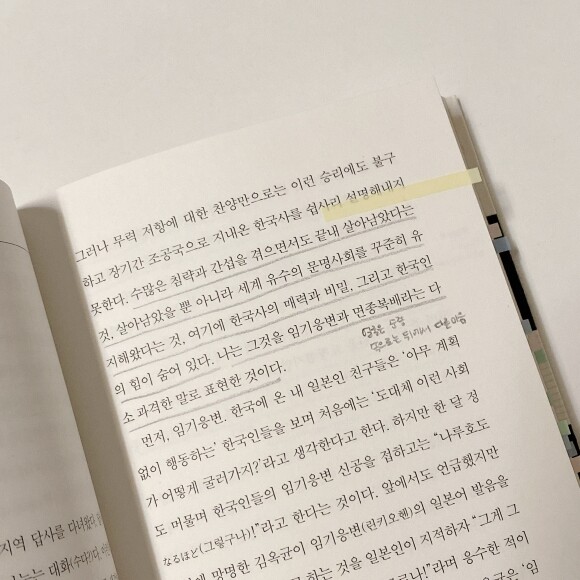 그러나 무력 저항에 대한 찬양만으로는 이런 승리에도 불구
하고 장기간 조공국으로 지내온 한국사를 쉽사리 설명해내지
못한다. 수많은 침략과 간섭을 겪으면서도 끝내 살아남았다는
것, 살아남았을 뿐 아니라 세계 유수의 문명사회를 꾸준히 유
지해왔다는 것, 여기에 한국사의 매력과 비밀, 그리고 한국인
의 힘이 숨어 있다. 나는 그것을 임기응변과 면종복배라는 다
소 과격한 말로 표현한 것이다.
겉은 순종
속으로는 뒤에서 다른 마음
먼저, 임기응변. 한국에 온 내 일본인 친구들은 '아무 계획
없이 행동하는' 한국인들을 보며 처음에는 '도대체 이런 사회
가 어떻게 굴러가지?'라고 생각한다고 한다. 하지만 한 달 정
도 머물며 한국인들의 임기응변 신공을 접하고는 "나루호도
なるほど(그렇구나)!"라고 한다는 것이다. 앞에서도 언급했지만
에 망명한 김옥균이 임기응변(린키오헨)의 일본어 발음을
하는 것을 일본인이 지적하자 "그게 그
구나!"라며 응수한 적이
은 '임
지역 답사를 다녀왔다.
나누는 대화(수다)다.